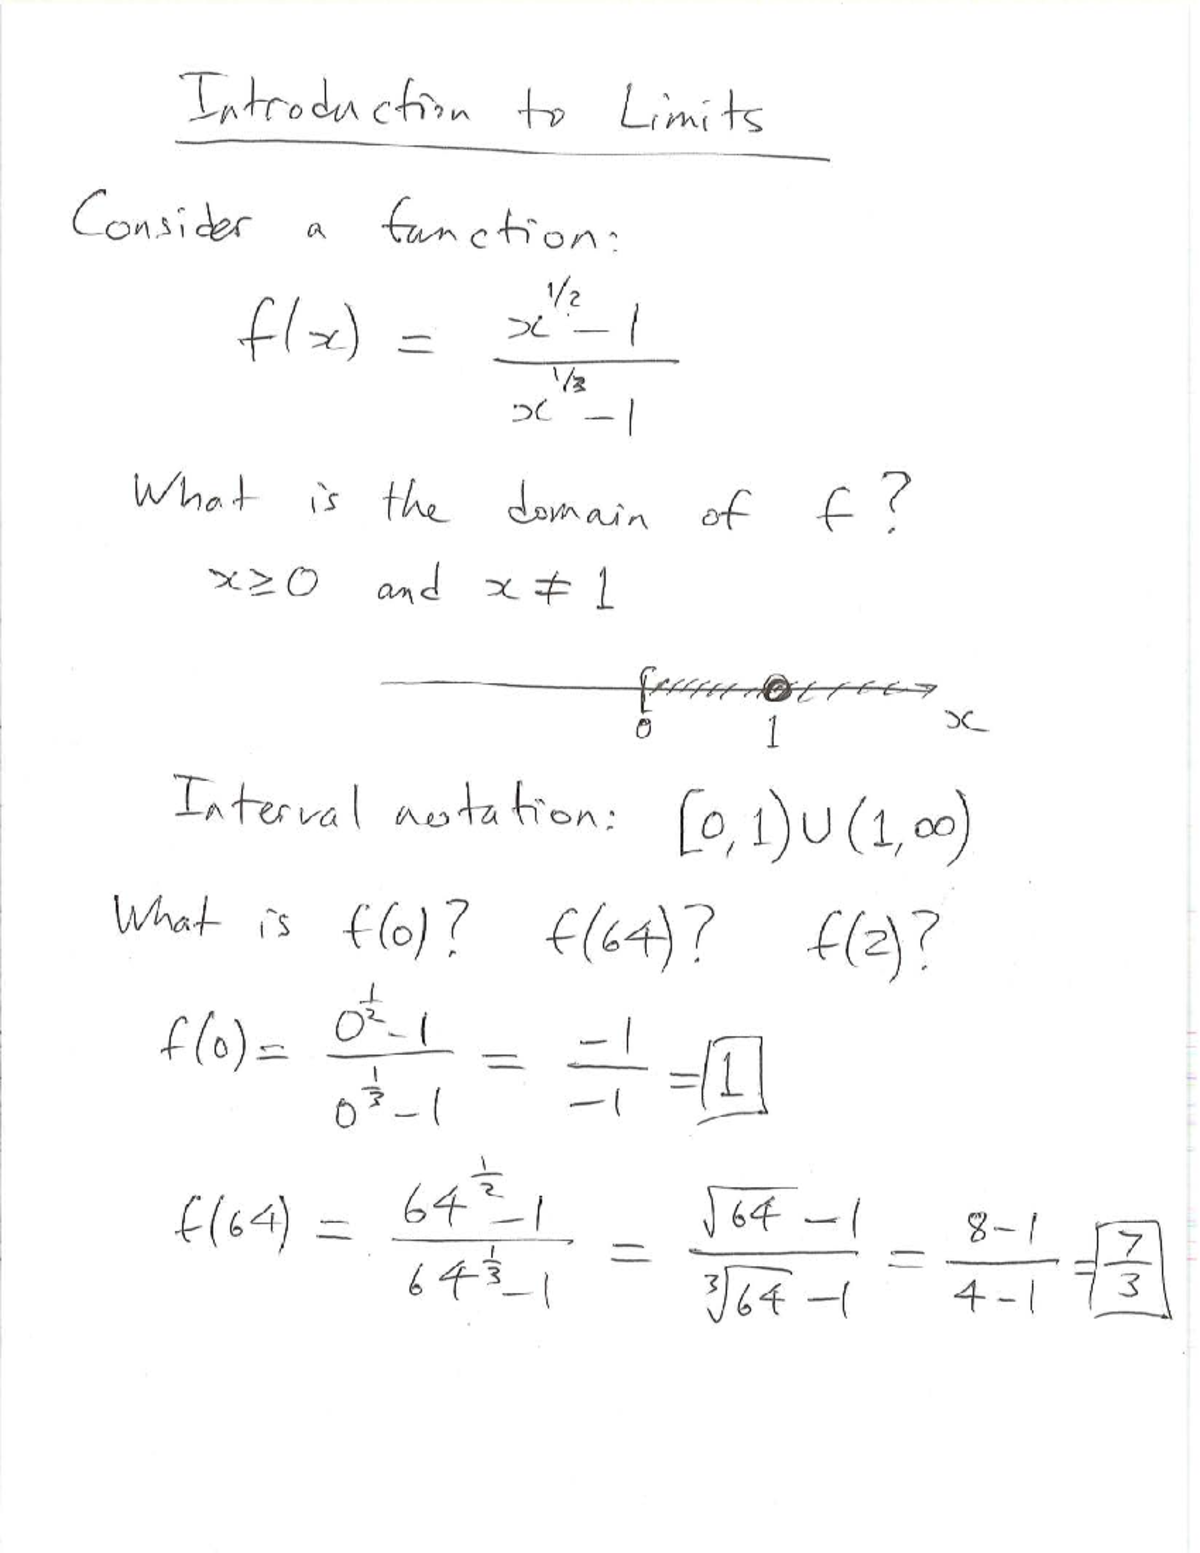 Introduction to Limits
Consider a function:
f(x) = (x^{1/2} - 1)/(x^{1/3} - 1)
What is the domain of f?
x ≥ 0 and x ≠ 1
0 1 x
Interval notation: [0, 1) ∪ (1, ∞)
What is f(0)? f(64)? f(2)?
f(0) = (0^{1/2} - 1)/(0^{1/3} - 1) = (-1)/(-1) = 1
f(64) = (64^{1/2} - 1)/(64^{1/3} - 1) = (√64 - 1)/(∛64 - 1) = (8 - 1)/(4 - 1) = 7/3